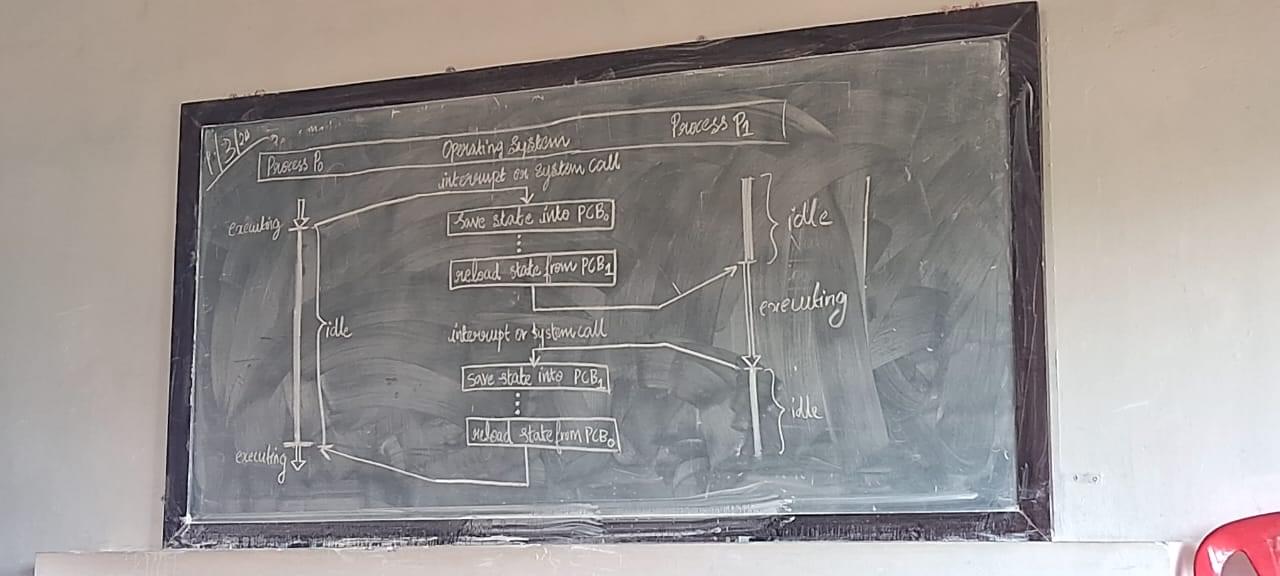 Process P0 Operating System Process P1
interrupt or system call
executing
save state into PCB0
idle
reload state from PCB1
executing
idle
interrupt or system call
save state into PCB1
idle
reload state from PCB0
executing